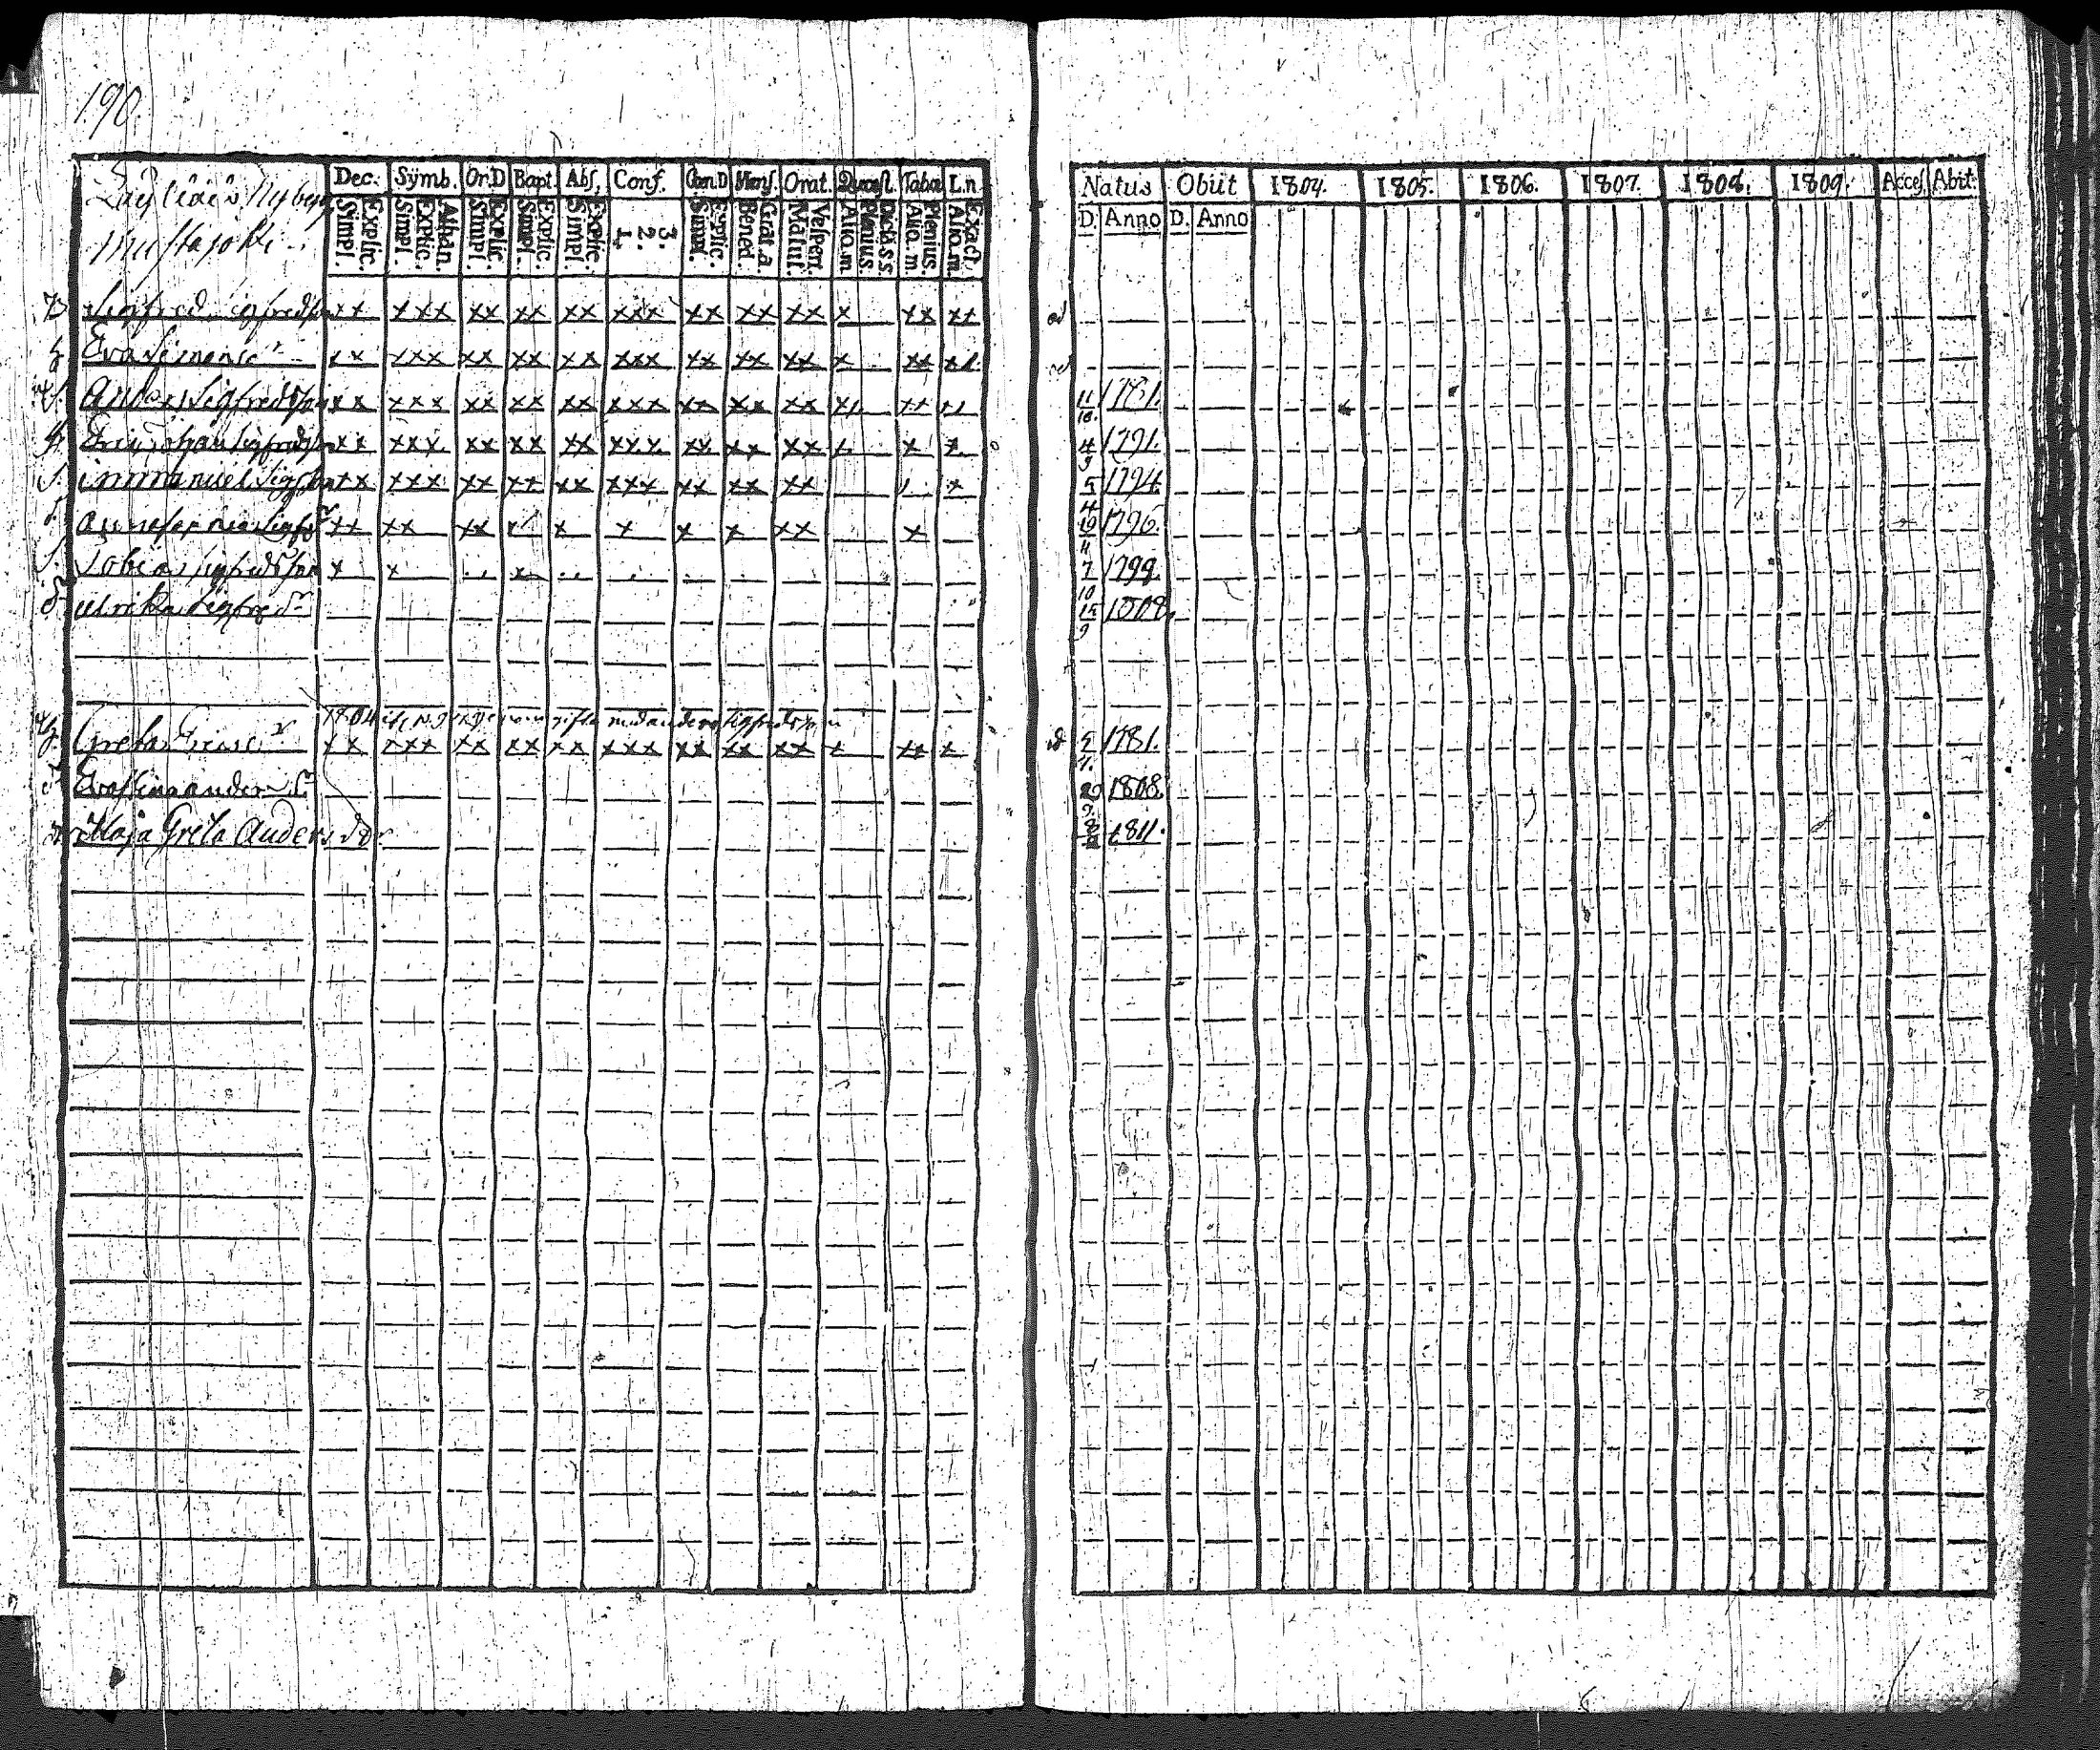 190.
Nybygg
Mustajoki
Dec. Symb. Or.D Bapt. Abs. Conf. Cæn.D Mens. Orat. Quæst. Taba L.n.
Simpl. Explic. Simpl. Explic. Athan. Simpl. Explic. Simpl. Explic. Simpl. Explic. 1. 2. 3. Simpl. Explic. Bened. Grat. a. Matut. Vespert. Alio. m. Plenius. Dicta. s s Alio. m. Plenius. Alio. m. Exact.
Natus Obiit 1804. 1805. 1806. 1807. 1808. 1809. Acces. Abit.
D. Anno D. Anno
Sigfred Sigfredsson xx xxx xx xx xx xxx xx xx xx x xx xx
Eva Simonsdr xx xxx xx xx xx xxx xx xx xx x xx xx
Anders Sigfredsson xx xxx xx xx xx xxx xx xx xx xx xx xx 11 10. 1781.
Eric Johan Sigfredss xx xxx xx xx xx xxx xx xx xx x x x 4 9 1791.
immanuel Sigfr xx xxx xx xx xx xxx xx xx xx x 5 4 1794.
xx xx xx x x x x x xx x 19 11 1796.
Tobias Sigfredsson x x x 7 10 1799.
Ulrika Sigfredr 15 9 1808.
1804 gift med anders Sigfredsson
Greta Ericsdr xx xxx xx xx xx xxx xx xx xx x xx x 1781.
Eva Stina anders dr 1808.
Maja Greta Anders dr. 1811.